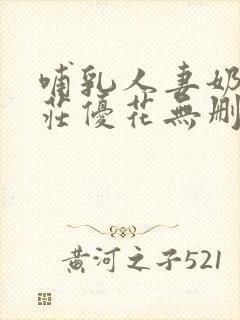 哺乳人妻奶
莊優花無刪
黄河之子521